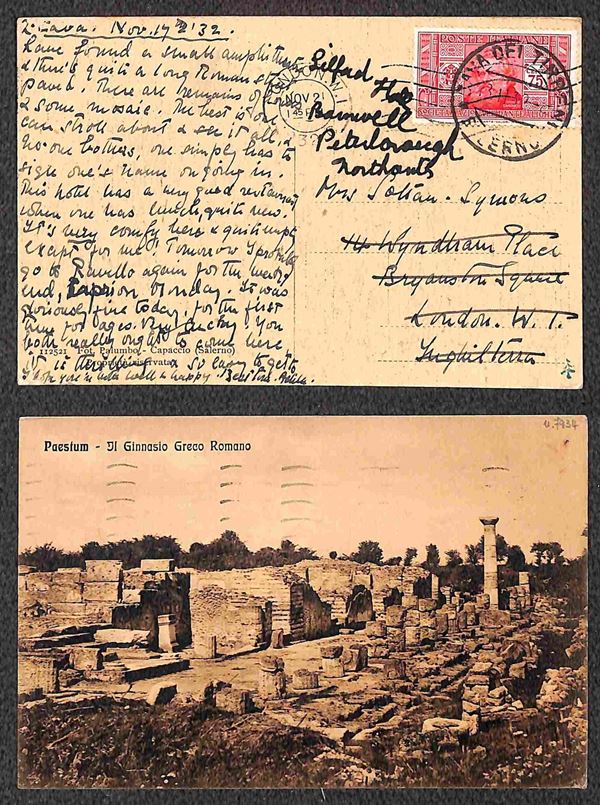 2. Cava. Nov. 17 '32.
have found a small amphitheatre
& there's quite a long Roman st.
paved. There are remains of
& some mosaic. The best is one
can stroll about & see it all, &
no one bothers, one simply has to
sign one's name on going in.
This hotel has a very good restaurant
where one has lunch, quite new.
It's very comfy here & quite
except for me! Tomorrow I
go to Ravello again for the week
end, Capri on Monday. It was
gloriously fine today, for the first
time for ages. You
both really ought to come here
it is & so easy to get to
Hope you're both well & happy.
LONDON. W.1
NOV 21
1 45
POSTE ITALIANE
75
CAVA DEI TIRRENI
SALERNO
Hall
Barnwell
Peterborough
Northants
Mrs Soltau-Symons
14 Wyndham Place
Bryanston Square
London. W. 1.
Inghilterra
112521 Fot. Palumbo - Capaccio (Salerno)
Paestum - Il Ginnasio Greco Romano